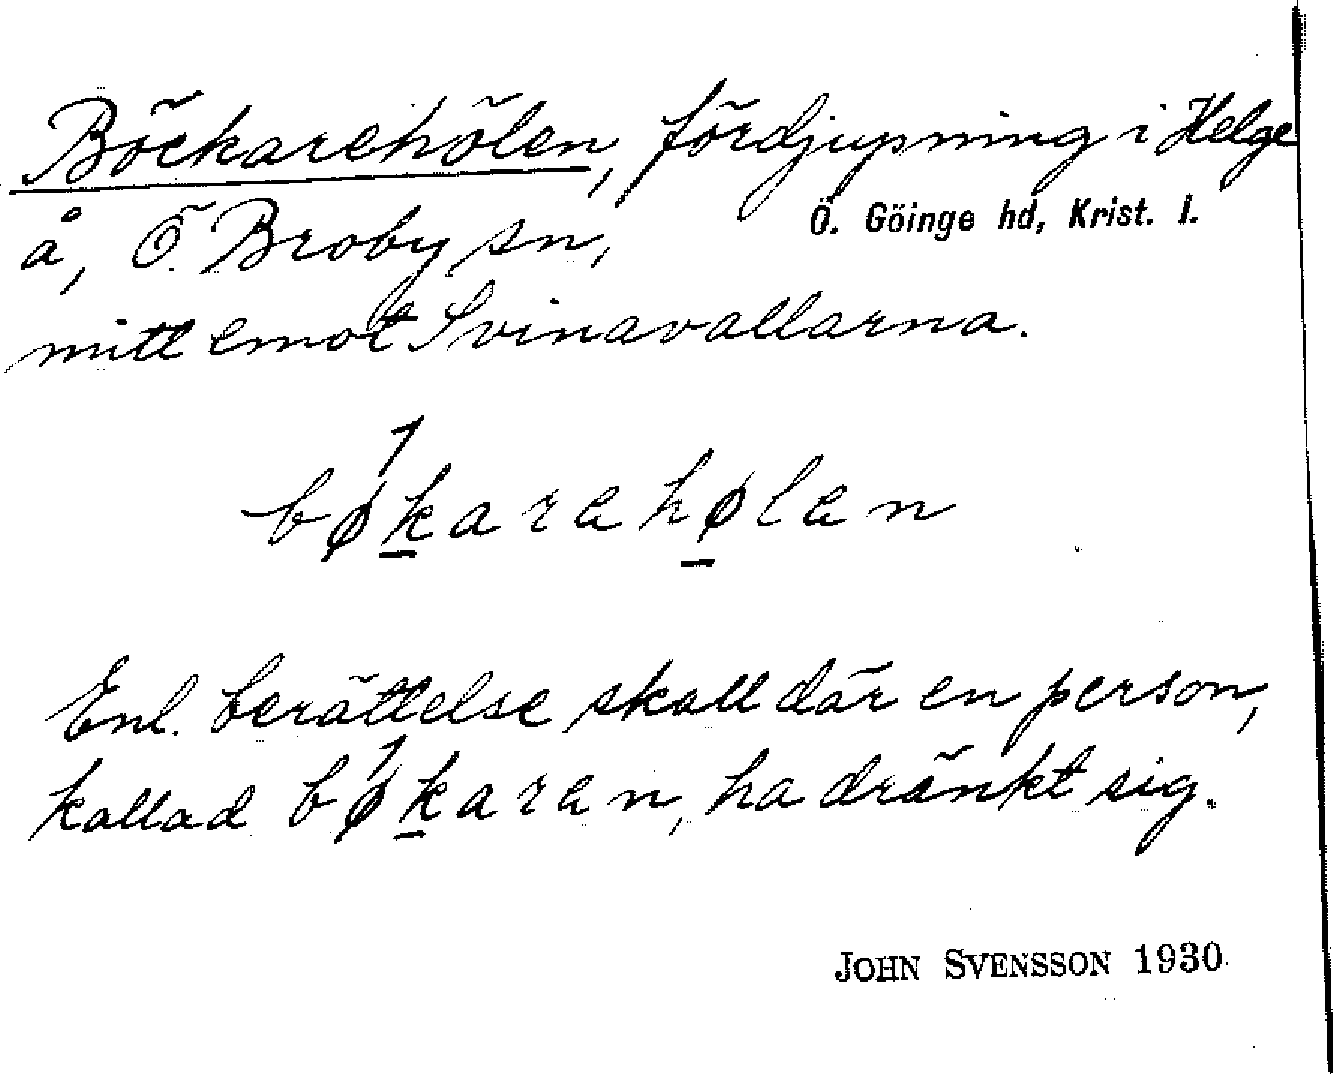 Böckarehölen, fördjupning i Helge
å, Ö. Broby sn, Ö. Göinge hd, Krist. l.
mitt emot Svinavallarna.
bø1k̲arah̲ølan
Enl. berättelse skall där en person,
kallad bø1k̲aran, ha dränkt sig.
JOHN SVENSSON 1930